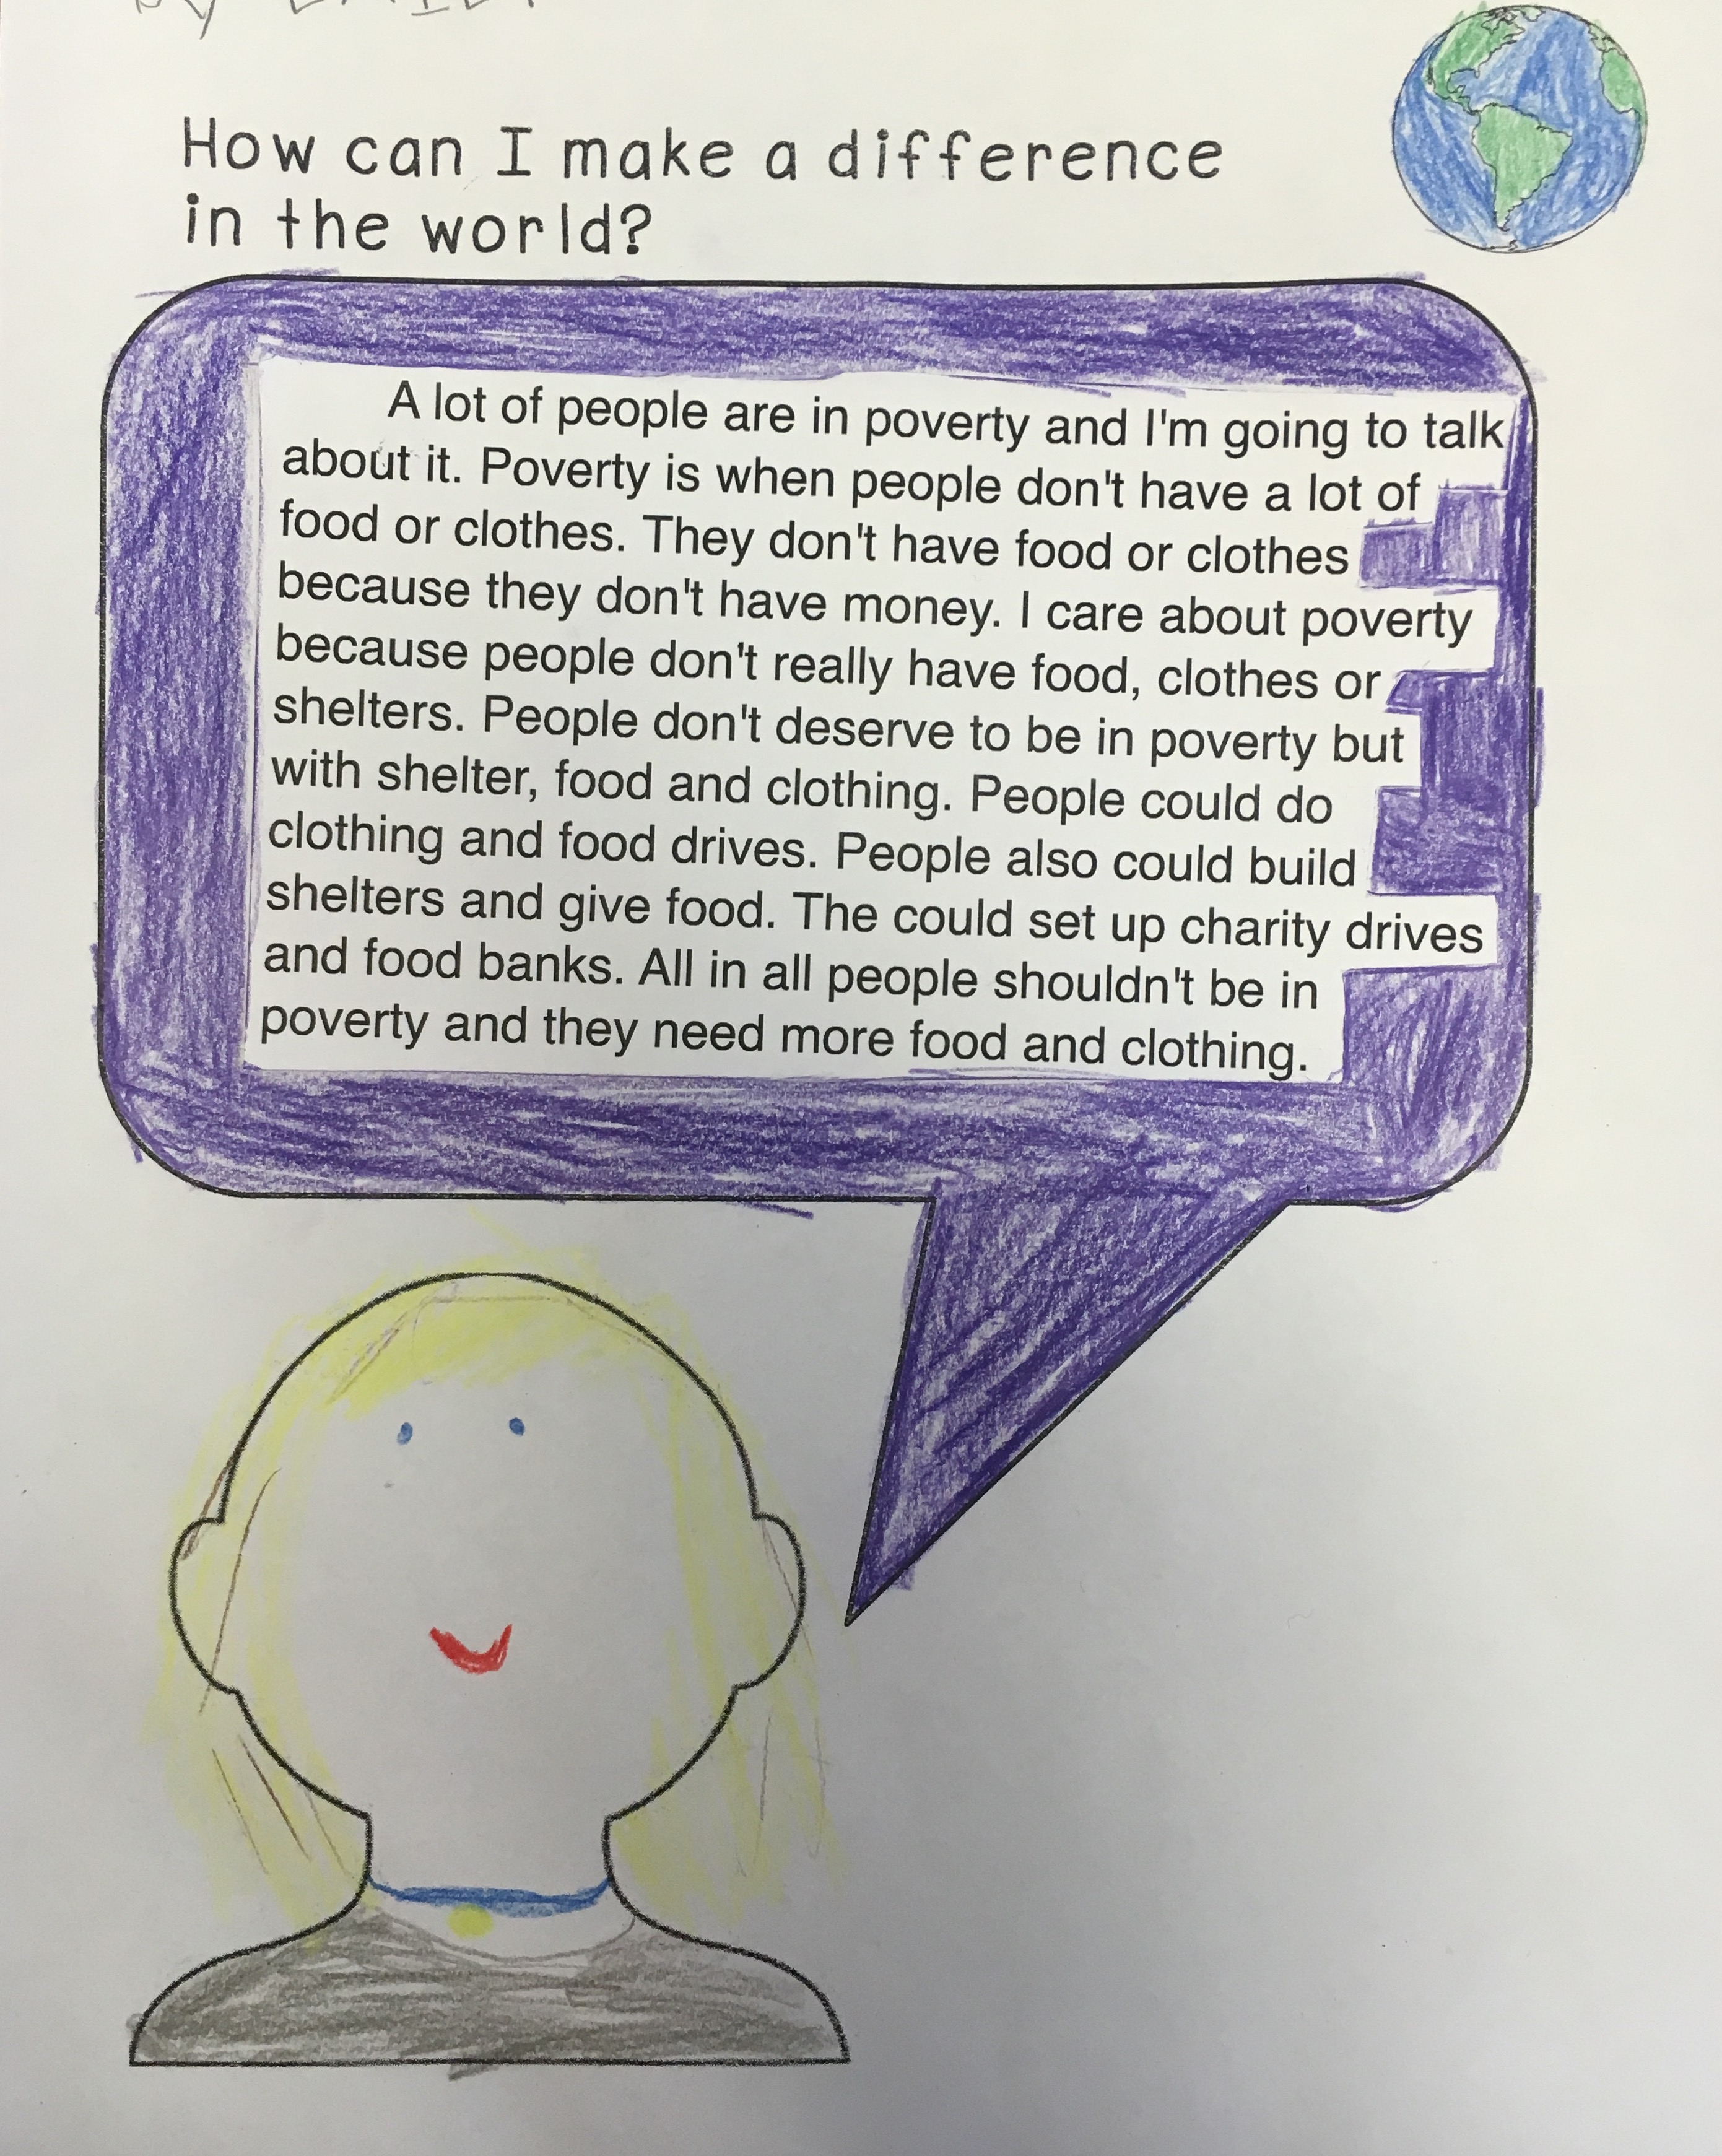 By
How can I make a difference
in the world?
A lot of people are in poverty and I'm going to talk
about it. Poverty is when people don't have a lot of
food or clothes. They don't have food or clothes
because they don't have money. I care about poverty
because people don't really have food, clothes or
shelters. People don't deserve to be in poverty but
with shelter, food and clothing. People could do
clothing and food drives. People also could build
shelters and give food. The could set up charity drives
and food banks. All in all people shouldn't be in
poverty and they need more food and clothing.